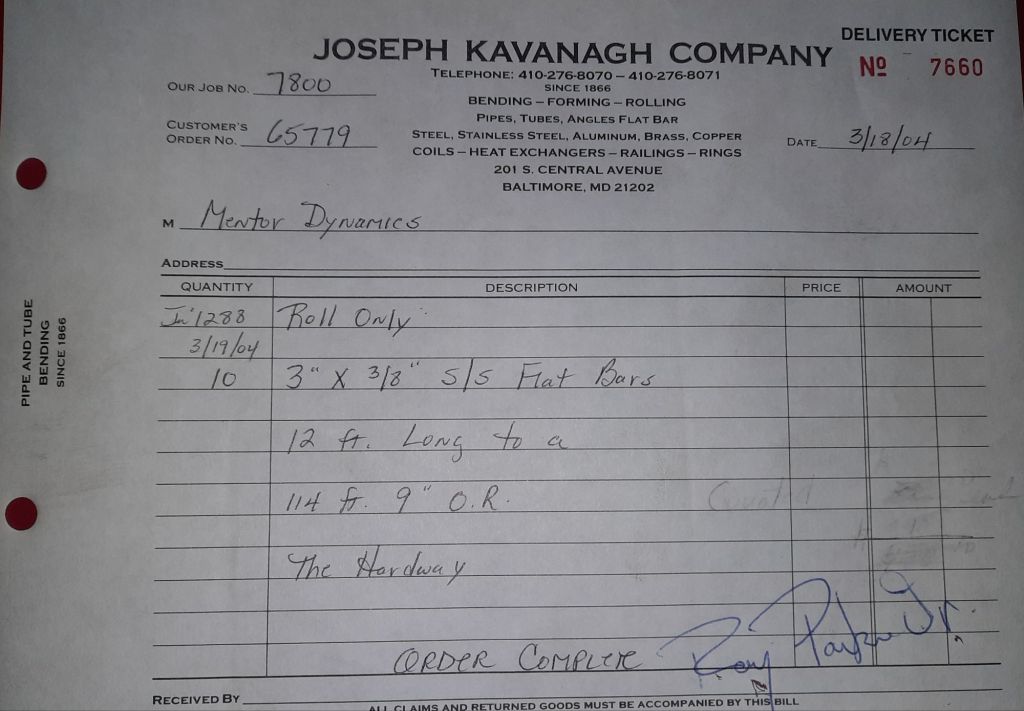 DELIVERY TICKET
JOSEPH KAVANAGH COMPANY
Nº 7660
TELEPHONE: 410-276-8070 – 410-276-8071
SINCE 1866
OUR JOB NO. 7800
BENDING – FORMING – ROLLING
PIPES, TUBES, ANGLES FLAT BAR
CUSTOMER'S
ORDER NO. 65779
STEEL, STAINLESS STEEL, ALUMINUM, BRASS, COPPER
DATE 3/18/04
COILS – HEAT EXCHANGERS – RAILINGS – RINGS
201 S. CENTRAL AVENUE
BALTIMORE, MD 21202
M Mentor Dynamics
ADDRESS
QUANTITY DESCRIPTION PRICE AMOUNT
1288 Roll Only
3/19/04
10 3" X 3/8" S/S Flat Bars
12 ft. Long to a
114 ft. 9" O.R.
The Hardway
ORDER COMPLETE
Ray Parker Jr.
RECEIVED BY
ALL CLAIMS AND RETURNED GOODS MUST BE ACCOMPANIED BY THIS BILL
PIPE AND TUBE
BENDING
SINCE 1866